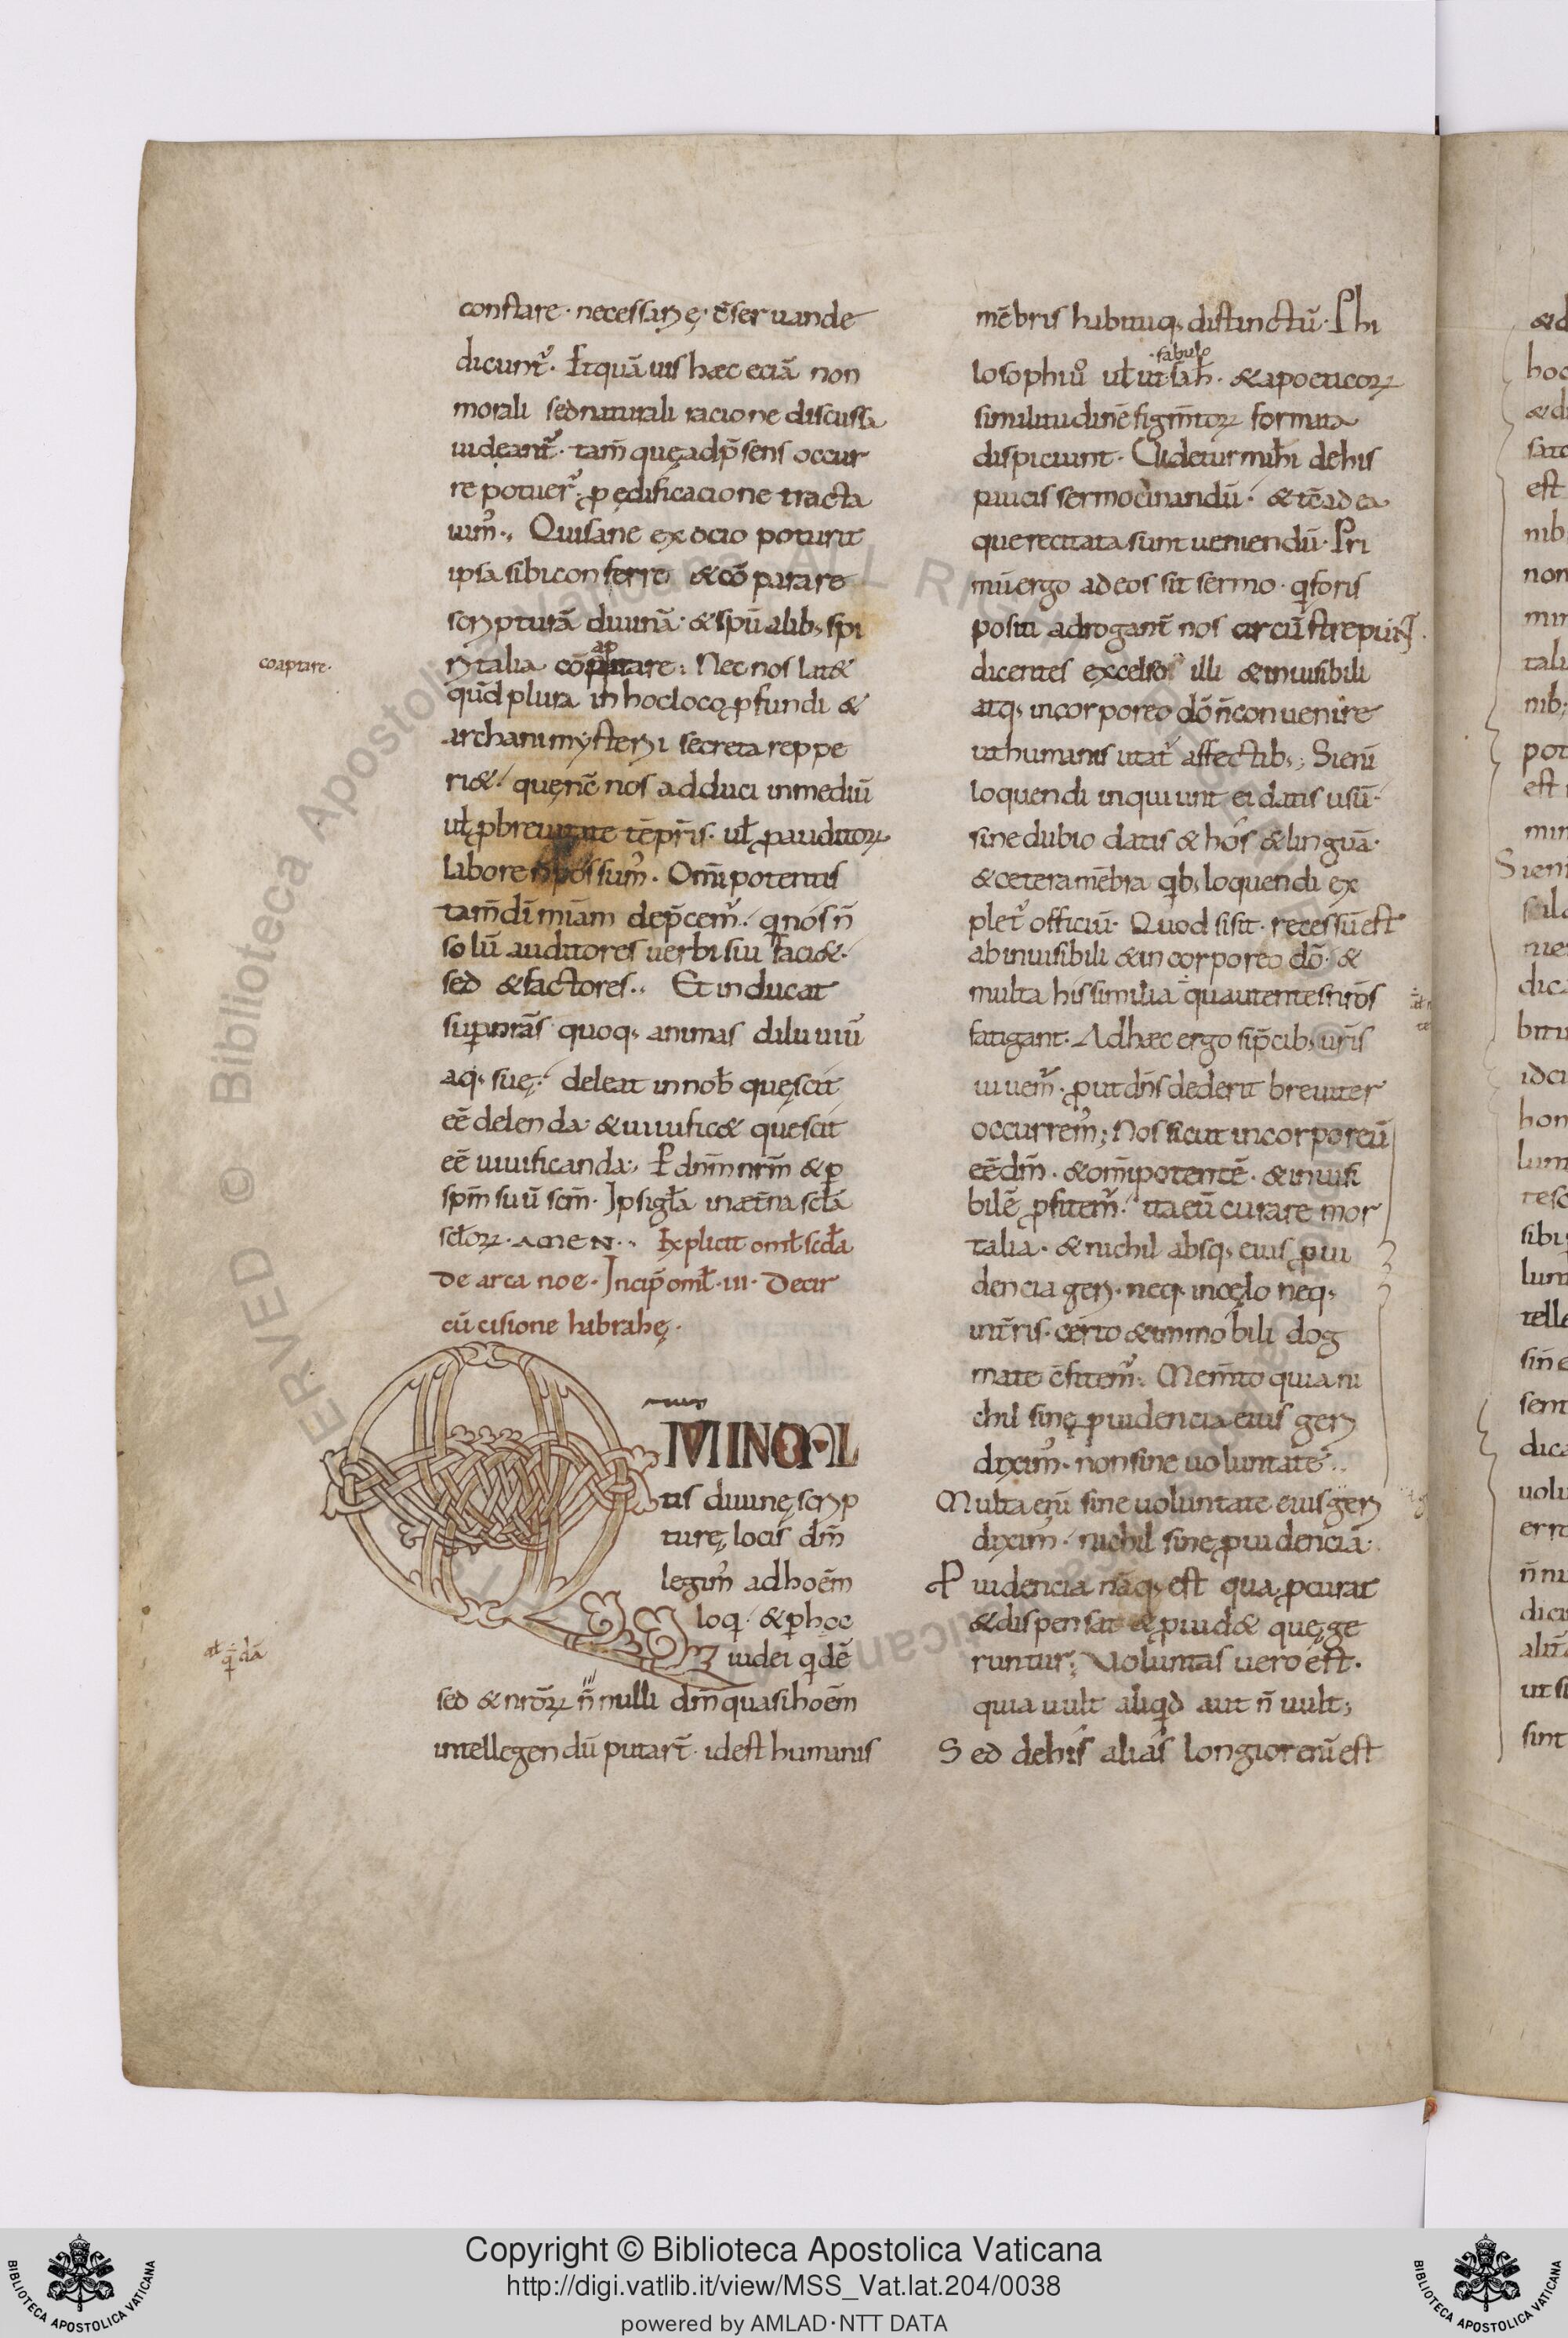 constare · necessariȩ · c̄seruande
dicunt᷒ · Et quā uis hæc eciā non
morali sed naturali racione discussa
uideant᷒ · tam̄ quȩ ad p̄sens occur
re potuer᷒ · ꝓ ędificacione tracta
uim᷒ · Qui sane ex ocio poturit
ipsa sibi conferre & cō parare
scripturā diuinā · & spū alib; spi
ritalia cō aptare : Nec nos lat&
coaptare ·
qūd plura in hoc loco ꝓfundi &
archani mysterii secreta reppe
ri& · quę nc̄ nos adduci in mediū
uł ꝓ breuitate tēpr̄is · uł ꝓ auditorꝝ
labore n̄ possum᷒ · Om̄ipotentis
tam̄ dī miām dep̄cem᷒ · q nos n̄
solū auditores uerbi sui faci& ·
sed & factores · Et inducat
sup nr̄as quoq; animas diluuiū
aq; suę · deleat in nob quę scit
eē delenda · & uiuific& que scit
eē uiuificanda · P dnm̄ nrm̄ & ꝑ
spm̄ suū scm̄ · Ip̄si gła in æt̄na scła
scłorꝝ · AMEN · Explicit omł scd̄a
De arca noe · Incip̄ omł · III · De cir
cū cisione habrahę ·
QUUM IN MUL
tis diuinę scrip
turę locis dm̄
legim᷒ ad hoēm
loq · & ꝑ hoc
iudei qdē
sed & nrōrꝝ n̄ nulli dm̄ quasi hoēm
intellegendū putar̄t · id est humanis
mēbris habituq; distinctū · Phi
fabulę
losophiu᷒ uł ut · & apoeticorꝝ
similitudinē figm̄torꝝ formata
dispiciunt · Uidetur mihi de his
paucis sermocinandū · & tc̄ ad ea
que recitata sunt ueniendū · Pri
mū ergo ad eos sit sermo · q foris
positi adrogant̄ nos circū strepunt ·
dicentes excelso illi & inuisibili
atq; incorporeo dō n̄ conuenire
ut humanis utat᷒ affectib; · Si eni
loquendi inquiunt ei datis usū ·
sine dubio datis & hos & linguā ·
& cetera mēbra qb; loquendi ex
plet᷒ officiū · Quod si sit · recessū est
ab inuisibili & incorporeo dō · &
multa his similia qua utentes nr̄os
fatigant · Ad hæc ergo si p̄cib; ur̄is
iuuem᷒ · ꝓut dn̄s dederit breuiter
occurrem᷒ ; Nos sicut incorporeū
eē dm̄ · & om̄ipotentē · & inuisi
bilē ꝓfitem᷒ · ita eū curare mor
talia · & nichil absq; eius ꝓui
dencia geri · neq; in cęlo neq;
in t̄ris · certo & immobili dog
mate c̄fitem᷒ · Mem̄to quia ni
chil sine ꝓuidencia eius geri
dixim᷒ · non sine uoluntate ·
Multa enī sine uoluntate eius geri
dixim᷒ · nichil sine ꝓuidencia ·
Puidencia nāq; est qua ꝓcurat
& dispensat & ꝓuid& quę ge
runtur ; Uoluntas uero est ·
quia uult aliqd aut n̄ uult ;
Sed de his alias longior enī est
Copyright © Biblioteca Apostolica Vaticana
http://digi.vatlib.it/view/MSS_Vat.lat.204/0038
powered by AMLAD·NTT DATA
BIBLIOTECA APOSTOLICA VATICANA
BIBLIOTECA APOSTOLICA VATICANA